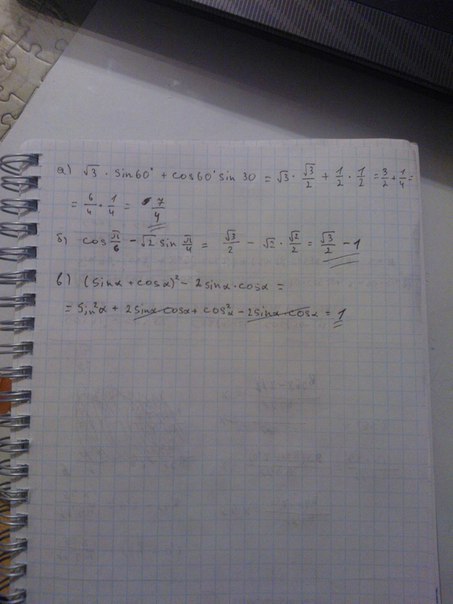 а) √3 · sin60° + cos60° sin 30 = √3 · √3/2 + 1/2 · 1/2 = 3/2 + 1/4 =
= 6/4 + 1/4 = 7/4
б) cos π/6 - √2 sin π/4 = √3/2 - √2 · √2/2 = √3/2 - 1
в) (sinα + cosα)² - 2sinα·cosα =
= sin²α + 2sinα cosα + cos²α - 2sinα·cosα = 1